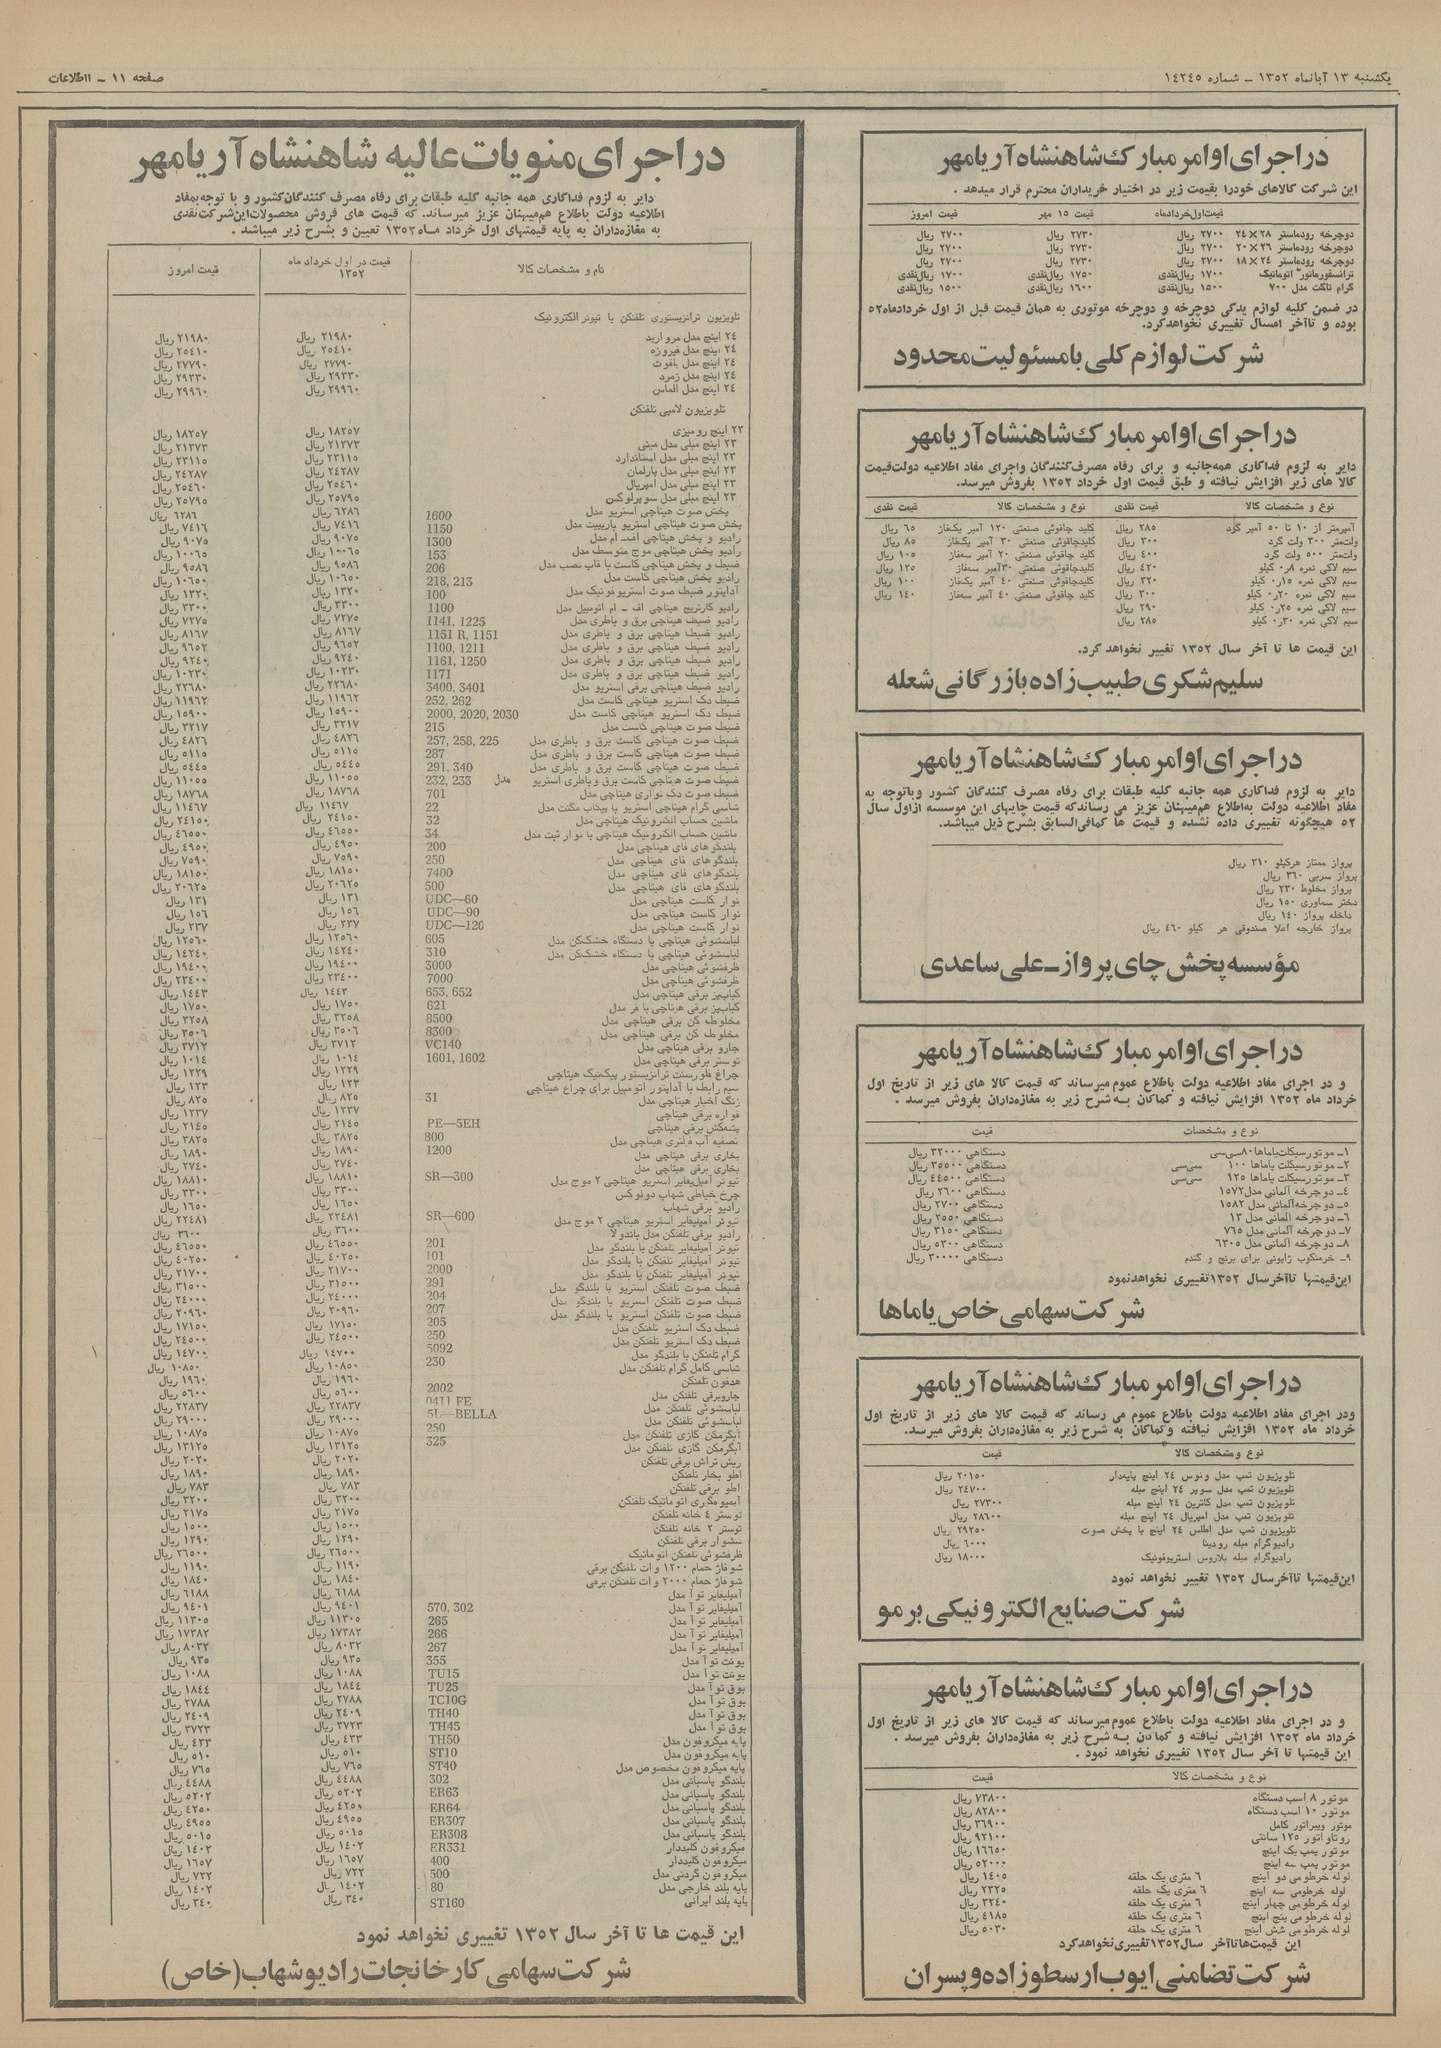 یکشنبه ۱۳ آبانماه ۱۳۵۲ ـ شماره ۱۴۲۴۵
صفحه ۱۱ ـ اطلاعات
در اجرای اوامر مبارک شاهنشاه آریامهر
این شرکت کالاهای خود را بقیمت زیر در اختیار خریداران محترم قرار میدهد .
قیمت اول خردادماه قیمت ۱۵ مهر قیمت امروز
دوچرخه رودماستر ۲۸×۲۴ ۲۷۰۰ ریال ۲۷۳۰ ریال ۲۷۰۰ ریال
دوچرخه رودماستر ۲۶×۲۰ ۲۷۰۰ ریال ۲۷۳۰ ریال ۲۷۰۰ ریال
دوچرخه رودماستر ۲۴×۱۸ ۲۷۰۰ ریال ۲۷۳۰ ریال ۲۷۰۰ ریال
ترانسفورماتور اتوماتیک ۱۷۰۰ ریال‌نقدی ۱۷۵۰ ریال‌نقدی ۱۷۰۰ ریال‌نقدی
گرام تاکت مدل ۷۰۰ ۱۵۰۰ ریال‌نقدی ۱۶۰۰ ریال‌نقدی ۱۵۰۰ ریال‌نقدی
در ضمن کلیه لوازم یدکی دوچرخه و دوچرخه موتوری به همان قیمت قبل از اول خردادماه۵۲
بوده و تاآخر امسال تغییری نخواهدکرد.
شرکت لوازم کلی بامسئولیت محدود
در اجرای اوامر مبارک شاهنشاه آریامهر
دایر به لزوم فداکاری همه‌جانبه و برای رفاه مصرف‌کنندگان واجرای مفاد اطلاعیه دولت‌قیمت
کالا های زیر افزایش نیافته و طبق قیمت اول خرداد ۱۳۵۲ بفروش میرسد.
نوع و مشخصات کالا قیمت نقدی نوع و مشخصات کالا قیمت نقدی
آمپرمتر از ۱۰ تا ۵۰ آمپر گرد ۲۸۵ ریال کلید چاقوئی صنعتی ۱۲۰ آمپر یک‌فاز ۶۵ ریال
ولت‌متر ۳۰۰ ولت گرد ۳۰۰ ریال کلیدچاقوئی صنعتی ۳۰ آمپر یک‌فاز ۸۵ ریال
ولت‌متر ۵۰۰ ولت گرد ۴۰۰ ریال کلید چاقوئی صنعتی ۲۰ آمپر سه‌فاز ۱۰۵ ریال
سیم لاکی نمره ۰٫۸ کیلو ۴۲۰ ریال کلیدچاقوئی صنعتی ۳۰آمپر سه‌فاز ۱۲۵ ریال
سیم لاکی نمره ۰٫۱۵ کیلو ۳۲۰ ریال کلیدچاقوئی صنعتی ۴۰ آمپر یک‌فاز ۱۰۰ ریال
سیم لاکی نمره ۰٫۲۰ کیلو ۳۰۰ ریال کلید چاقوئی صنعتی ۴۰ آمپر سه‌فاز ۱۴۰ ریال
سیم لاکی نمره ۰٫۲۵ کیلو ۲۹۰ ریال
سیم لاکی نمره ۰٫۳۰ کیلو ۲۸۵ ریال
این قیمت ها تا آخر سال ۱۳۵۲ تغییر نخواهد کرد.
سلیم شکری طبیب زاده بازرگانی شعله
در اجرای اوامر مبارک شاهنشاه آریامهر
دایر به لزوم فداکاری همه جانبه کلیه طبقات برای رفاه مصرف کنندگان کشور وباتوجه به
مفاد اطلاعیه دولت به‌اطلاع هم‌میهنان عزیز می رساندکه قیمت چایهای این موسسه ازاول سال
۵۲ هیچگونه تغییری داده نشده و قیمت ها کمافی‌السابق بشرح ذیل میباشد.
پرواز ممتاز هرکیلو ۳۱۰ ریال
پرواز سربی ۳۶۰ ریال
پرواز مخلوط ۲۳۰ ریال
دختر سماوری ۱۵۰ ریال
داخله پرواز ۱۴۰ ریال
پرواز خارجه اعلا صندوقی هر کیلو ۴۶۰ ریال
مؤسسه پخش چای پرواز ـ علی ساعدی
در اجرای اوامر مبارک شاهنشاه آریامهر
و در اجرای مفاد اطلاعیه دولت باطلاع عموم میرساند که قیمت کالا های زیر از تاریخ اول
خرداد ماه ۱۳۵۲ افزایش نیافته و کماکان به شرح زیر به مغازه‌داران بفروش میرسد .
نوع و مشخصات قیمت
۱ـ موتورسیکلت‌یاماها۸۰سی‌سی دستگاهی ۳۲۰۰۰ ریال
۲ـ موتورسیکلت یاماها ۱۰۰ سی‌سی دستگاهی ۳۵۵۰۰ ریال
۳ـ موتورسیکلت یاماها ۱۲۵ سی‌سی دستگاهی ۴۴۵۰۰ ریال
۴ـ دوچرخه آلمانی مدل۱۵۷۲ دستگاهی ۲۶۰۰ ریال
۵ـ دوچرخه‌آلمانی مدل ۱۵۸۲ دستگاهی ۲۷۰۰ ریال
۶ـ دوچرخه آلمانی مدل ۱۳ دستگاهی ۲۵۵۰ ریال
۷ـ دوچرخه آلمانی مدل ۷۶۵ دستگاهی ۳۱۵۰ ریال
۸ـ دوچرخه آلمانی مدل ۶۳۰۵ دستگاهی ۵۳۰۰ ریال
۹ـ خرمنکوب ژاپونی برای برنج و گندم دستگاهی ۳۰۰۰۰ ریال
این‌قیمتها تاآخر سال ۱۳۵۲تغییری نخواهدنمود
شرکت سهامی خاص یاماها
در اجرای اوامر مبارک شاهنشاه آریامهر
ودر اجرای مفاد اطلاعیه دولت باطلاع عموم می رساند که قیمت کالا های زیر از تاریخ اول
خرداد ماه ۱۳۵۲ افزایش نیافته وکماکان به شرح زیر به مغازه‌داران بفروش میرسد.
نوع ومشخصات کالا قیمت
تلویزیون تمپ مدل ونوس ۲۴ اینچ پایه‌دار ۲۰۱۵۰ ریال
تلویزیون تمپ مدل سوپر ۲۴ اینچ مبله ۲۴۷۰۰ ریال
تلویزیون تمپ مدل کاترین ۲۴ اینچ مبله ۲۷۳۰۰ ریال
تلویزیون تمپ مدل امپریال ۲۴ اینچ مبله ۲۸۶۰۰ ریال
تلویزیون تمپ مدل اطلس ۲۴ اینچ با پخش صوت ۲۹۲۵۰ ریال
رادیوگرام مبله رودینا ۶۰۰۰ ریال
رادیوگرام مبله بلاروس استریوفونیک ۱۸۰۰۰ ریال
این‌قیمتها تاآخر سال ۱۳۵۲ تغییر نخواهد نمود
شرکت صنایع الکترونیکی برمو
در اجرای اوامر مبارک شاهنشاه آریامهر
و در اجرای مفاد اطلاعیه دولت باطلاع عموم‌میرساند که قیمت کالا های زیر از تاریخ اول
خرداد ماه ۱۳۵۲ افزایش نیافته و کماکان به شرح زیر به مغازه‌داران بفروش میرسد .
این قیمتها تا آخر سال ۱۳۵۲ تغییری نخواهد نمود .
نوع و مشخصات کالا قیمت
موتور ۸ اسب دستگاه ۷۳۸۰۰ ریال
موتور ۱۰ اسب دستگاه ۸۲۸۰۰ ریال
موتور ویبراتور کامل ۳۶۹۰۰ ریال
روتاواتور ۱۲۵ سانتی ۹۲۱۰۰ ریال
موتور پمپ یک اینچ ۱۶۶۵۰ ریال
موتور پمپ سه اینچ ۵۲۰۰۰ ریال
لوله خرطومی دو اینچ ۶ متری یک حلقه ۱۴۰۵ ریال
لوله خرطومی سه اینچ ۶ متری یک حلقه ۲۳۲۵ ریال
لوله خرطومی چهار اینچ ۶ متری یک حلقه ۳۲۴۰ ریال
لوله خرطومی پنج اینچ ۶ متری یک حلقه ۴۱۸۵ ریال
لوله خرطومی شش اینچ ۶ متری یک حلقه ۵۰۳۰ ریال
این قیمت‌هاتاآخر سال۱۳۵۲تغییری‌نخواهدکرد
شرکت تضامنی ایوب ارسطوزاده و پسران
در اجرای منویات عالیه شاهنشاه آریامهر
دایر به لزوم فداکاری همه جانبه کلیه طبقات برای رفاه مصرف کنندگان‌کشور و با توجه بمفاد
اطلاعیه دولت باطلاع هم‌میهنان عزیز میرساند، که قیمت های فروش محصولات‌این‌شرکت‌نقدی
به مغازه‌داران به پایه قیمتهای اول خرداد ماه ۱۳۵۲ تعیین و بشرح زیر میباشد .
نام و مشخصات کالا قیمت در اول خرداد ماه ۱۳۵۲ قیمت امروز
تلویزیون ترانزیستوری تلفنکن با تیونر الکترونیک
۲۴ اینچ مدل مروارید ۲۱۹۸۰ ریال ۲۱۹۸۰ ریال
۲۴ اینچ مدل فیروزه ۲۵۴۱۰ ریال ۲۵۴۱۰ ریال
۲۴ اینچ مدل یاقوت ۲۷۷۹۰ ریال ۲۷۷۹۰ ریال
۲۴ اینچ مدل زمرد ۲۹۳۳۰ ریال ۲۹۳۳۰ ریال
۲۴ اینچ مدل الماس ۲۹۹۶۰ ریال ۲۹۹۶۰ ریال
تلویزیون لامپی تلفنکن
۲۳ اینچ رومیزی ۱۸۲۵۷ ریال ۱۸۲۵۷ ریال
۲۳ اینچ مبلی مدل مینی ۲۱۳۷۳ ریال ۲۱۳۷۳ ریال
۲۳ اینچ مبلی مدل استاندارد ۲۳۱۱۵ ریال ۲۳۱۱۵ ریال
۲۳ اینچ مبلی مدل پارلمان ۲۴۲۸۷ ریال ۲۴۲۸۷ ریال
۲۳ اینچ مبلی مدل امپریال ۲۵۴۶۰ ریال ۲۵۴۶۰ ریال
۲۳ اینچ مبلی مدل سوپرلوکس ۲۵۷۹۵ ریال ۲۵۷۹۵ ریال
پخش صوت هیتاچی استریو مدل 1600 ۶۲۸۶ ریال ۶۲۸۶ ریال
پخش صوت هیتاچی استریو مدل 1150 ۷۴۱۶ ریال ۷۴۱۶ ریال
رادیو و پخش هیتاچی اف‌ـ ام مدل 1300 ۹۰۷۵ ریال ۹۰۷۵ ریال
رادیو پخش هیتاچی موج متوسط مدل 153 ۱۰۰۶۵ ریال ۱۰۰۶۵ ریال
ضبط و پخش هیتاچی کاست با قاب نصب مدل 206 ۹۵۸۶ ریال ۹۵۸۶ ریال
رادیو پخش هیتاچی کاست مدل 218, 213 ۱۰۶۵۰ ریال ۱۰۶۵۰ ریال
آداپتور ضبط صوت استریوفونیک مدل 100 ۱۳۲۰ ریال ۱۳۲۰ ریال
رادیو کارتریج هیتاچی اف ـ ام اتومبیل مدل 1100 ۳۳۰۰ ریال ۳۳۰۰ ریال
رادیو ضبط هیتاچی برق و باطری مدل 1141, 1225 ۷۲۷۵ ریال ۷۲۷۵ ریال
رادیو ضبط هیتاچی برق و باطری مدل 1151 R, 1151 ۸۱۶۷ ریال ۸۱۶۷ ریال
رادیو ضبط هیتاچی برق و باطری مدل 1100, 1211 ۹۶۵۲ ریال ۹۶۵۲ ریال
رادیو ضبط هیتاچی برق و باطری مدل 1161, 1250 ۹۲۴۰ ریال ۹۲۴۰ ریال
رادیو ضبط هیتاچی برق و باطری مدل 1171 ۱۰۲۳۰ ریال ۱۰۲۳۰ ریال
رادیو ضبط هیتاچی برقی استریو مدل 3400, 3401 ۲۲۶۸۰ ریال ۲۲۶۸۰ ریال
ضبط دک استریو هیتاچی کاست مدل 252, 262 ۱۱۹۶۲ ریال ۱۱۹۶۲ ریال
ضبط دک استریو هیتاچی کاست مدل 2000, 2020, 2030 ۱۵۹۰۰ ریال ۱۵۹۰۰ ریال
ضبط صوت هیتاچی کاست مدل 215 ۳۲۱۷ ریال ۳۲۱۷ ریال
ضبط صوت هیتاچی کاست برق و باطری مدل 257, 258, 225 ۴۸۲۶ ریال ۴۸۲۶ ریال
ضبط صوت هیتاچی کاست برق و باطری مدل 287 ۵۱۱۵ ریال ۵۱۱۵ ریال
ضبط صوت هیتاچی کاست برق و باطری مدل 291, 340 ۵۴۴۵ ریال ۵۴۴۵ ریال
ضبط صوت هیتاچی کاست برق وباطری استریو مدل 232, 233 ۱۱۰۵۵ ریال ۱۱۰۵۵ ریال
ضبط صوت دک نواری هیتاچی مدل 701 ۱۸۷۶۸ ریال ۱۸۷۶۸ ریال
شاسی گرام هیتاچی استریو با پیکاپ مگنت مدل 22 ۱۱۴۶۷ ریال ۱۱۴۶۷ ریال
ماشین حساب الکترونیک هیتاچی مدل 32 ۲۴۱۵۰ ریال ۲۴۱۵۰ ریال
ماشین حساب الکترونیک هیتاچی با نوار ثبت مدل 34 ۴۶۵۵۰ ریال ۴۶۵۵۰ ریال
بلندگوهای فای هیتاچی مدل 200 ۴۹۵۰ ریال ۴۹۵۰ ریال
بلندگوهای فای هیتاچی مدل 250 ۷۵۹۰ ریال ۷۵۹۰ ریال
بلندگوهای فای هیتاچی مدل 7400 ۱۸۱۵۰ ریال ۱۸۱۵۰ ریال
بلندگوهای فای هیتاچی مدل 500 ۲۰۶۲۵ ریال ۲۰۶۲۵ ریال
نوار کاست هیتاچی مدل UDC—60 ۱۳۱ ریال ۱۳۱ ریال
نوار کاست هیتاچی مدل UDC—90 ۱۵۶ ریال ۱۵۶ ریال
نوار کاست هیتاچی مدل UDC—120 ۲۳۷ ریال ۲۳۷ ریال
لباسشوئی هیتاچی با دستگاه خشک‌کن مدل 605 ۱۲۵۶۰ ریال ۱۲۵۶۰ ریال
لباسشوئی هیتاچی با دستگاه خشک‌کن مدل 310 ۱۴۲۴۰ ریال ۱۴۲۴۰ ریال
ظرفشوئی هیتاچی مدل 3000 ۱۹۴۰۰ ریال ۱۹۴۰۰ ریال
ظرفشوئی هیتاچی مدل 7000 ۲۳۴۰۰ ریال ۲۳۴۰۰ ریال
کباب‌پز برقی هیتاچی مدل 653, 652 ۱۴۴۳ ریال ۱۴۴۳ ریال
کباب‌پز برقی هیتاچی با فر مدل 621 ۱۷۵۰ ریال ۱۷۵۰ ریال
مخلوط کن برقی هیتاچی مدل 8500 ۳۲۵۸ ریال ۳۲۵۸ ریال
مخلوط کن برقی هیتاچی مدل 8300 ۳۵۰۶ ریال ۳۵۰۶ ریال
جارو برقی هیتاچی مدل VC140 ۳۷۱۲ ریال ۳۷۱۲ ریال
توستر برقی هیتاچی مدل 1601, 1602 ۱۰۱۴ ریال ۱۰۱۴ ریال
چراغ فلورسنت ترانزیستور پیک‌نیک هیتاچی ۱۲۲۹ ریال ۱۲۲۹ ریال
سیم رابط با آداپتور اتومبیل برای چراغ هیتاچی ۱۲۳ ریال ۱۲۳ ریال
زنگ اخبار هیتاچی مدل 31 ۸۲۵ ریال ۸۲۵ ریال
فواره برقی هیتاچی ۱۲۳۷ ریال ۱۲۳۷ ریال
پشه‌کش برقی هیتاچی PE—5EH ۲۱۴۵ ریال ۲۱۴۵ ریال
تصفیه آب فیلتری هیتاچی مدل 800 ۳۸۲۵ ریال ۳۸۲۵ ریال
بخاری برقی هیتاچی مدل 1200 ۱۸۹۰ ریال ۱۸۹۰ ریال
بخاری برقی هیتاچی مدل ۲۷۴۰ ریال ۲۷۴۰ ریال
تیونر آمپلیفایر استریو هیتاچی ۲ موج مدل SR—300 ۱۸۸۱۰ ریال ۱۸۸۱۰ ریال
چرخ خیاطی شهاب دولوکس ۳۳۰۰ ریال ۳۳۰۰ ریال
رادیو برقی شهاب ۱۶۵۰ ریال ۱۶۵۰ ریال
تیونر آمپلیفایر استریو هیتاچی ۲ موج مدل SR—600 ۲۲۴۸۱ ریال ۲۲۴۸۱ ریال
رادیو برقی تلفنکن مدل باندولا ۳۶۰۰ ریال ۳۶۰۰ ریال
تیونر آمپلیفایر تلفنکن با بلندگو مدل 201 ۴۶۵۵۰ ریال ۴۶۵۵۰ ریال
تیونر آمپلیفایر تلفنکن با بلندگو مدل 101 ۴۰۲۵۰ ریال ۴۰۲۵۰ ریال
تیونر آمپلیفایر تلفنکن با بلندگو مدل 2000 ۲۱۷۰۰ ریال ۲۱۷۰۰ ریال
ضبط صوت تلفنکن استریو با بلندگو مدل 291 ۳۱۵۰۰ ریال ۳۱۵۰۰ ریال
ضبط صوت تلفنکن استریو با بلندگو مدل 204 ۲۴۰۰۰ ریال ۲۴۰۰۰ ریال
ضبط صوت تلفنکن استریو با بلندگو مدل 207 ۲۰۹۶۰ ریال ۲۰۹۶۰ ریال
ضبط دک استریو تلفنکن مدل 205 ۱۷۱۵۰ ریال ۱۷۱۵۰ ریال
ضبط دک استریو تلفنکن مدل 250 ۲۴۵۰۰ ریال ۲۴۵۰۰ ریال
گرام تلفنکن با بلندگو مدل 5092 ۱۴۷۰۰ ریال ۱۴۷۰۰ ریال
شاسی کامل گرام تلفنکن مدل 230 ۱۰۸۵۰ ریال ۱۰۸۵۰ ریال
هدفون تلفنکن ۱۹۶۰ ریال ۱۹۶۰ ریال
جاروبرقی تلفنکن مدل 2002 ۵۶۰۰ ریال ۵۶۰۰ ریال
لباسشوئی تلفنکن مدل 0411 FE ۲۲۸۳۷ ریال ۲۲۸۳۷ ریال
لباسشوئی تلفنکن مدل 5L—BELLA ۲۹۰۰۰ ریال ۲۹۰۰۰ ریال
آبگرمکن گازی تلفنکن مدل 250 ۱۰۸۷۵ ریال ۱۰۸۷۵ ریال
آبگرمکن گازی تلفنکن مدل 325 ۱۳۱۲۵ ریال ۱۳۱۲۵ ریال
ریش تراش برقی تلفنکن ۲۰۲۰ ریال ۲۰۲۰ ریال
اطو بخار تلفنکن ۱۸۹۰ ریال ۱۸۹۰ ریال
اطو برقی تلفنکن ۷۸۳ ریال ۷۸۳ ریال
آبمیوه‌گیری اتوماتیک تلفنکن ۳۲۰۰ ریال ۳۲۰۰ ریال
توستر ۴ خانه تلفنکن ۲۱۷۵ ریال ۲۱۷۵ ریال
توستر ۲ خانه تلفنکن ۱۵۰۰ ریال ۱۵۰۰ ریال
سشوار برقی تلفنکن ۱۲۹۰ ریال ۱۲۹۰ ریال
ظرفشوئی تلفنکن اتوماتیک ۲۶۵۰۰ ریال ۲۶۵۰۰ ریال
شوفاژ حمام ۱۲۰۰ وات تلفنکن برقی ۱۱۹۰ ریال ۱۱۹۰ ریال
شوفاژ حمام ۲۰۰۰ وات تلفنکن برقی ۱۸۴۰ ریال ۱۸۴۰ ریال
آمپلیفایر توآ مدل ۶۱۸۸ ریال ۶۱۸۸ ریال
آمپلیفایر توآ مدل 570, 302 ۹۴۰۱ ریال ۹۴۰۱ ریال
آمپلیفایر توآ مدل 265 ۱۱۳۰۵ ریال ۱۱۳۰۵ ریال
آمپلیفایر توآ مدل 266 ۱۷۳۸۲ ریال ۱۷۳۸۲ ریال
آمپلیفایر توآ مدل 267 ۸۰۳۲ ریال ۸۰۳۲ ریال
یونت توآ مدل 355 ۹۳۵ ریال ۹۳۵ ریال
یونت توآ مدل TU15 ۱۰۸۸ ریال ۱۰۸۸ ریال
بوق توآ مدل TU25 ۱۸۴۴ ریال ۱۸۴۴ ریال
بوق توآ مدل TC10G ۲۷۸۸ ریال ۲۷۸۸ ریال
بوق توآ مدل TH40 ۲۴۰۹ ریال ۲۴۰۹ ریال
بوق توآ مدل TH45 ۳۷۲۳ ریال ۳۷۲۳ ریال
پایه میکروفون مدل TH50 ۴۳۳ ریال ۴۳۳ ریال
پایه میکروفون مدل ST10 ۵۱۰ ریال ۵۱۰ ریال
پایه میکروفون مخصوص مدل ST40 ۷۶۵ ریال ۷۶۵ ریال
بلندگو پاسبانی مدل 302 ۴۴۸۸ ریال ۴۴۸۸ ریال
بلندگو پاسبانی مدل ER63 ۵۲۰۲ ریال ۵۲۰۲ ریال
بلندگو پاسبانی مدل ER64 ۴۲۵۰ ریال ۴۲۵۰ ریال
بلندگو پاسبانی مدل ER307 ۴۹۵۵ ریال ۴۹۵۵ ریال
بلندگو پاسبانی مدل ER308 ۵۰۱۵ ریال ۵۰۱۵ ریال
میکروفون کلیددار ER331 ۱۴۰۲ ریال ۱۴۰۲ ریال
میکروفون کلیددار 400 ۱۶۵۷ ریال ۱۶۵۷ ریال
میکروفون گردنی مدل 500 ۷۲۲ ریال ۷۲۲ ریال
پایه بلند خارجی مدل 80 ۱۴۰۲ ریال ۱۴۰۲ ریال
پایه بلند ایرانی ST160 ۳۴۰ ریال ۳۴۰ ریال
این قیمت ها تا آخر سال ۱۳۵۲ تغییری نخواهد نمود
شرکت سهامی کارخانجات رادیو شهاب (خاص)